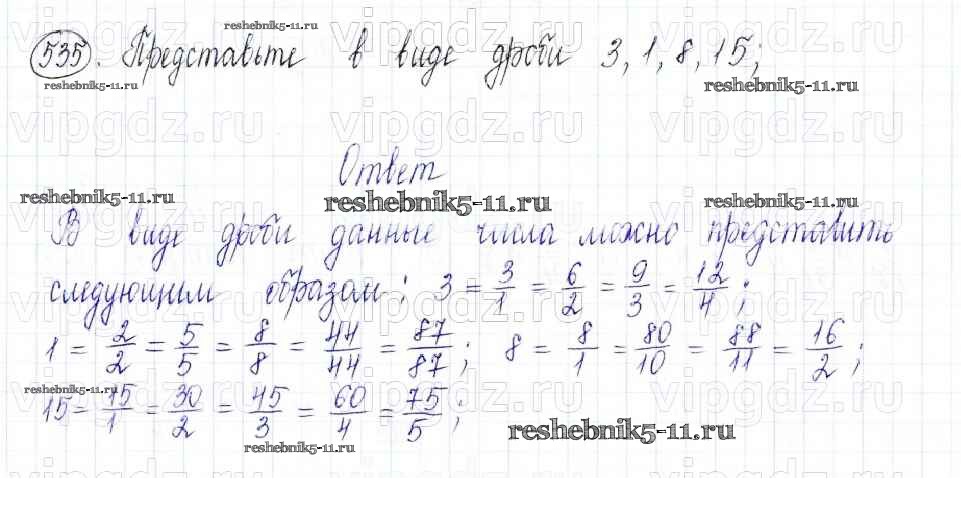 reshebnik5-11.ru
535. Представьте в виде дроби 3, 1, 8, 15;
reshebnik5-11.ru reshebnik5-11.ru
vipgdz.ru vipgdz.ru vipgdz.ru
Ответ
reshebnik5-11.ru reshebnik5-11.ru reshebnik5-11.ru
В виде дроби данные числа можно представить
следующим образом: 3 = 3/1 = 6/2 = 9/3 = 12/4;
1 = 2/2 = 5/5 = 8/8 = 44/44 = 87/87; 8 = 8/1 = 80/10 = 88/11 = 16/2;
reshebnik5-11.ru
15 = 75/1 = 30/2 = 45/3 = 60/4 = 75/5;
reshebnik5-11.ru reshebnik5-11.ru